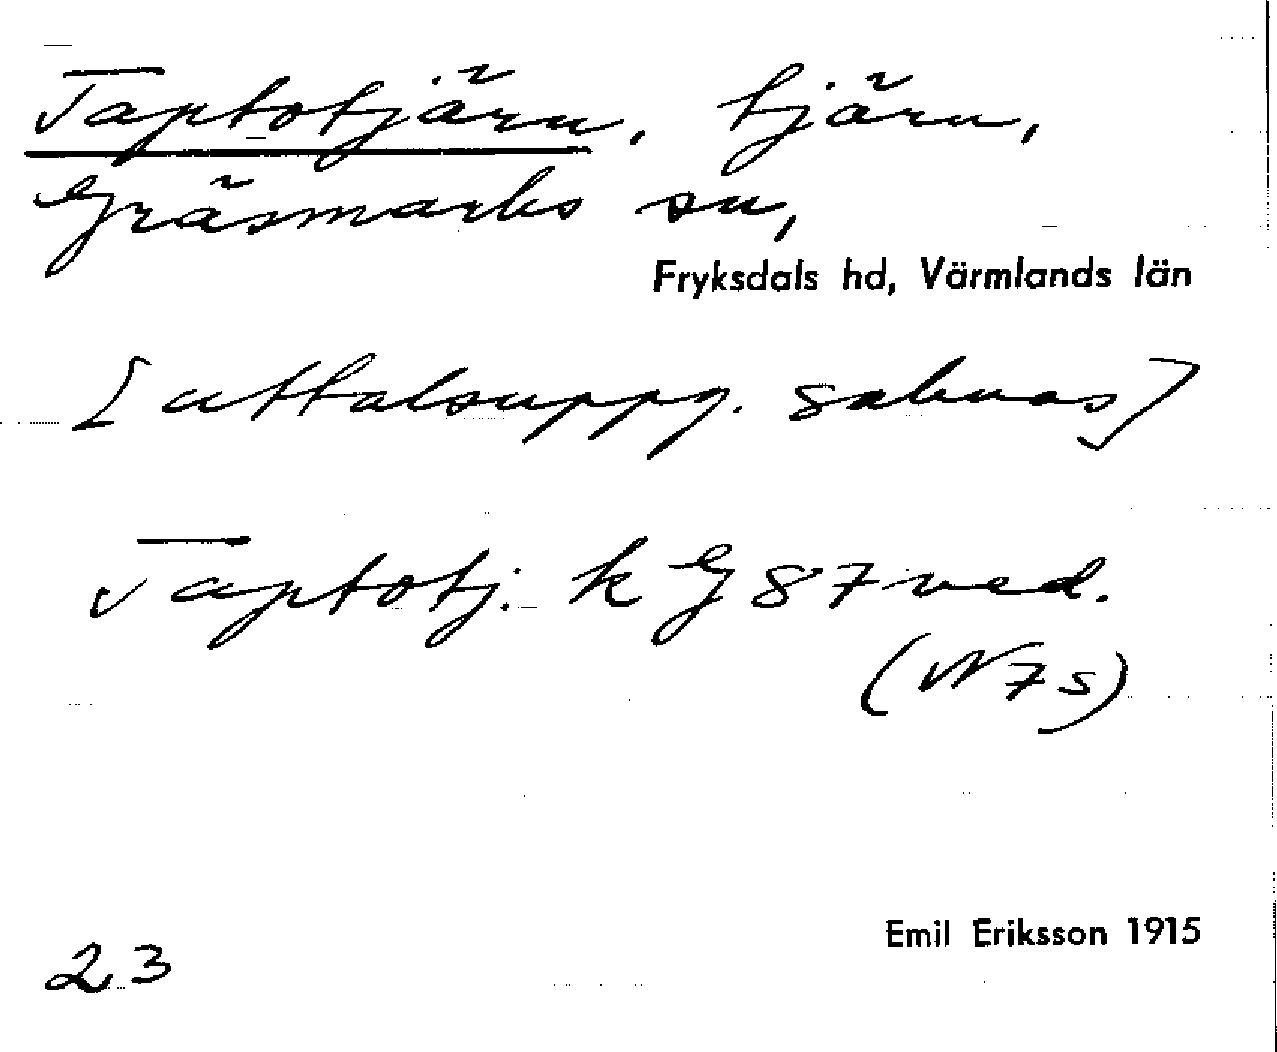 Taptotjärn, tjärn,
Gräsmarks sn,
Fryksdals hd, Värmlands län
[uttalsuppg. saknas]
Taptotj. k G 87 ved.
(W7s)
Emil Eriksson 1915
23